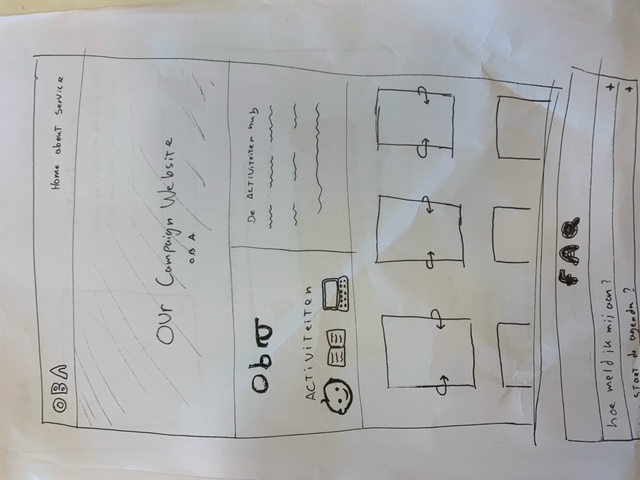 OBA
Home about service
Our Campaign Website
OBA
oba
De ACTiViTeiTen hub
ACTiViTeiTEN
FAQ
hoe meld ik mij aan? +
staat de agenda? +